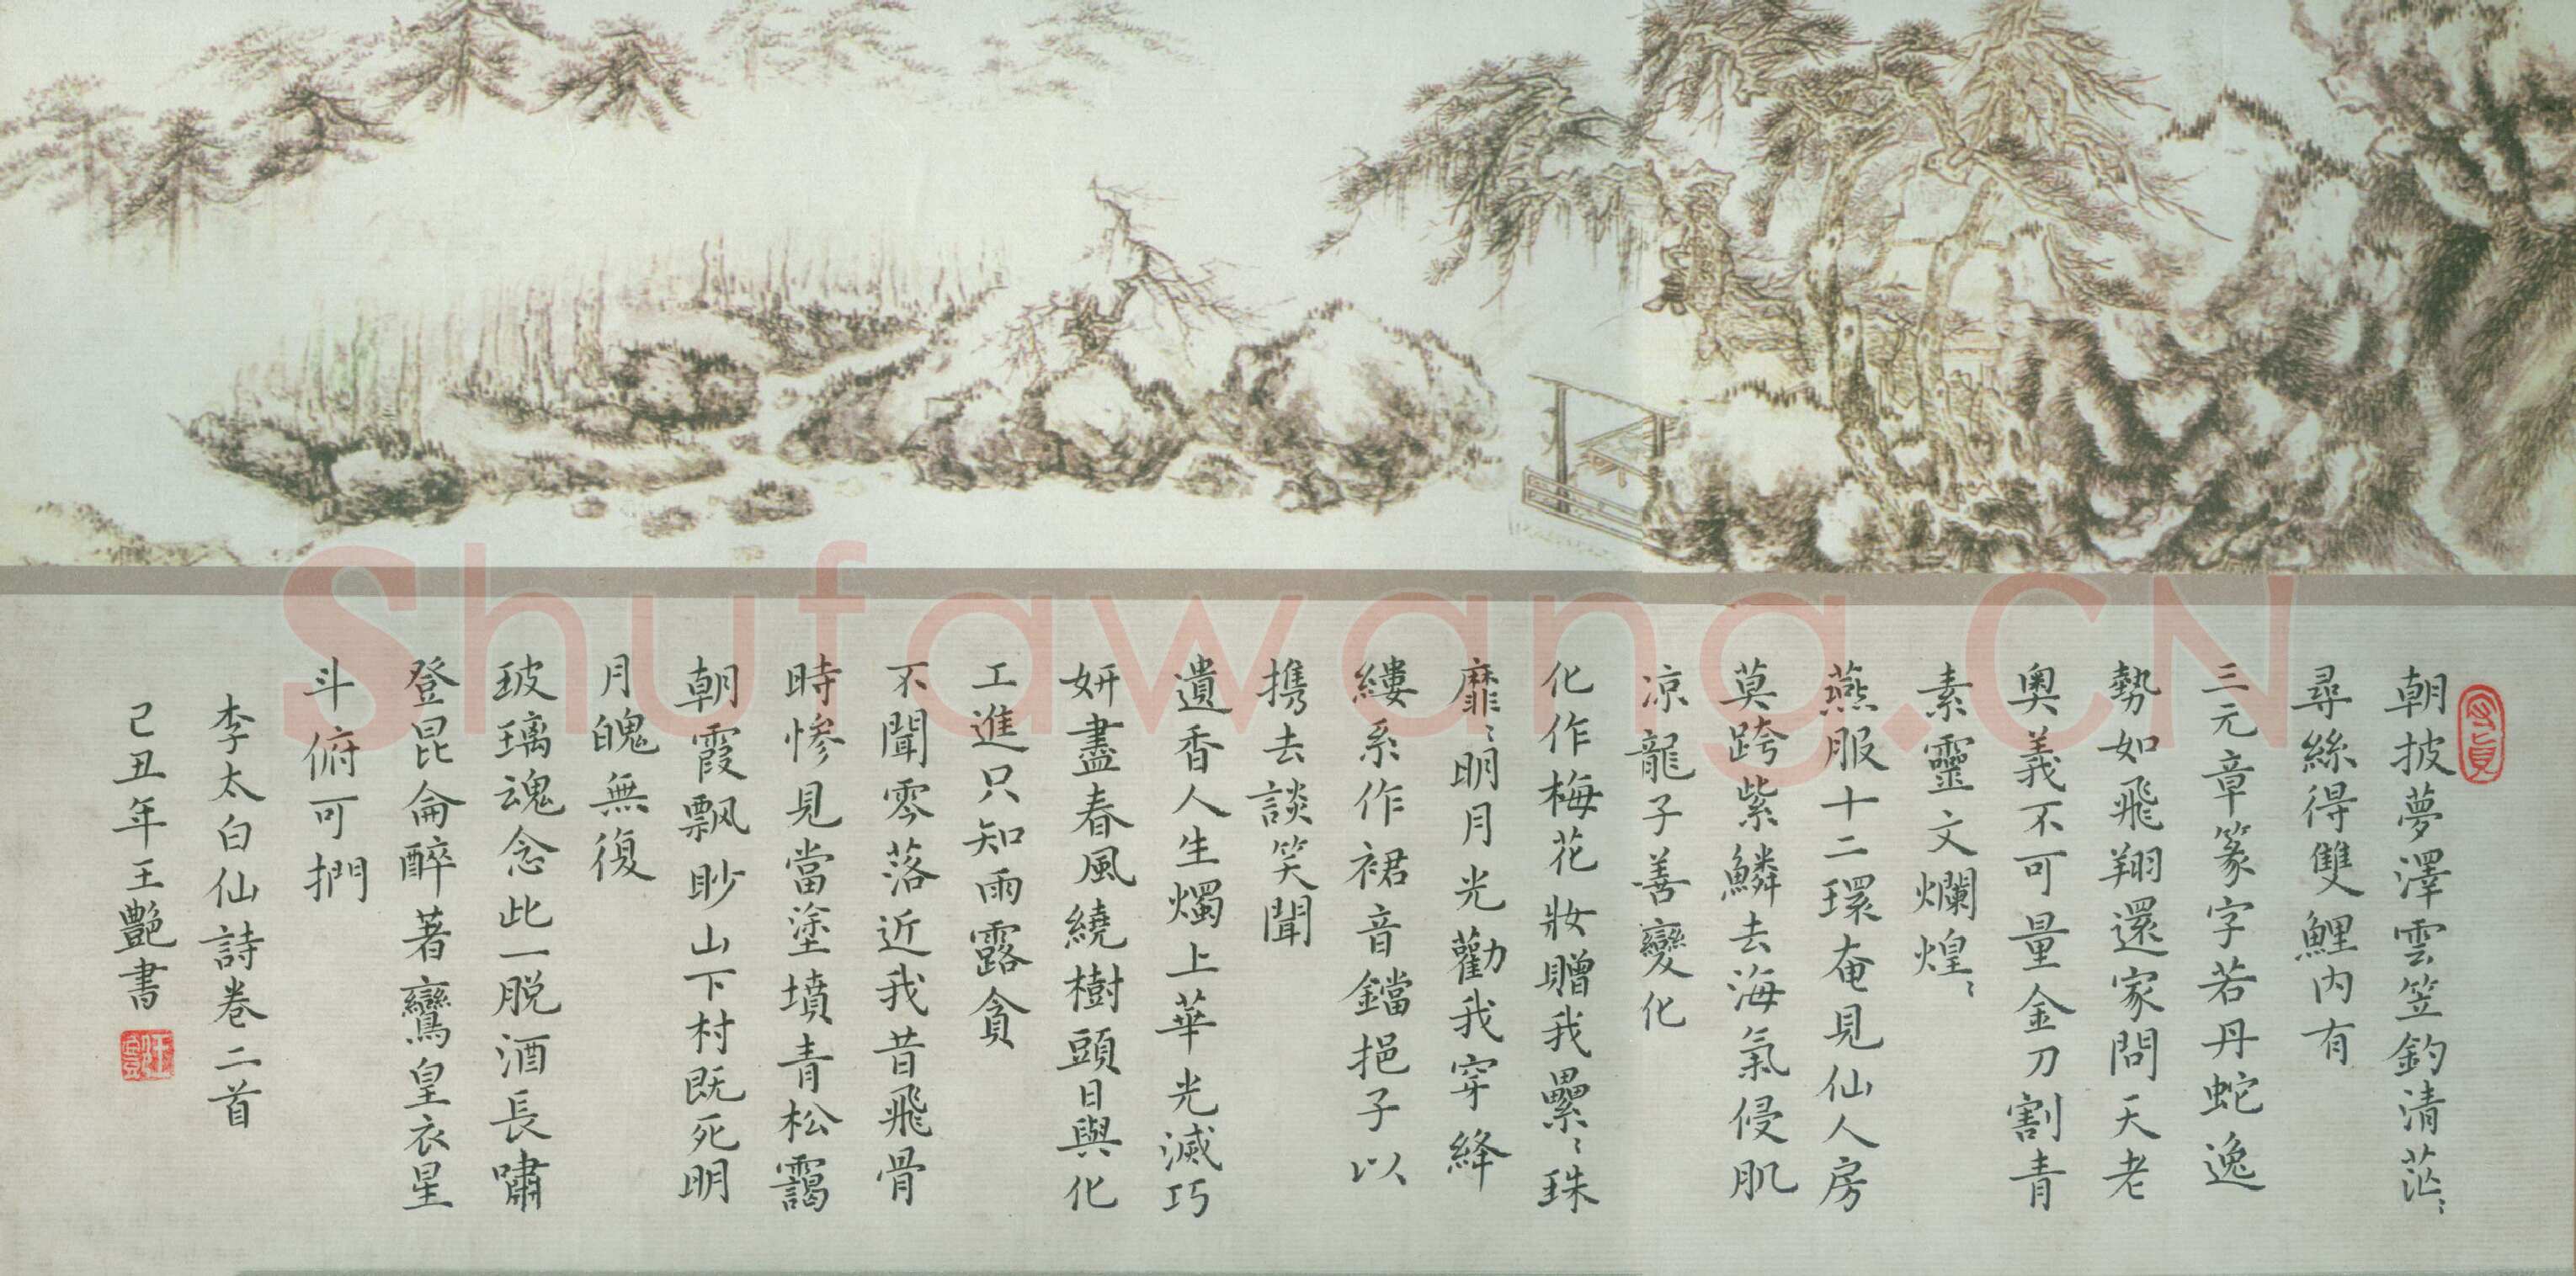 朝披夢澤雲笠釣清茫〻
尋絲得雙鯉内有
三元章篆字若丹蛇逸
勢如飛翔還家問天老
奥義不可量金刀割青
素靈文爛煌〻
燕服十二環奄見仙人房
莫跨紫鱗去海氣侵肌
凉龍子善變化
化作梅花妝贈我纍〻珠
靡〻明月光勸我穿絳
縷系作裙音鐺挹子以
携去談笑聞
遺香人生燭上華光滅巧
妍盡春風繞樹頭日與化
工進只知雨露貪
不聞零落近我昔飛骨
時慘見當塗墳青松靄
朝霞飘眇山下村既死明
月魄無復
玻璃魂念此一脱酒長嘯
登昆侖醉著鸞皇衣星
斗俯可捫
李太白仙詩卷二首
己丑年王艷書
Shufawang.CN